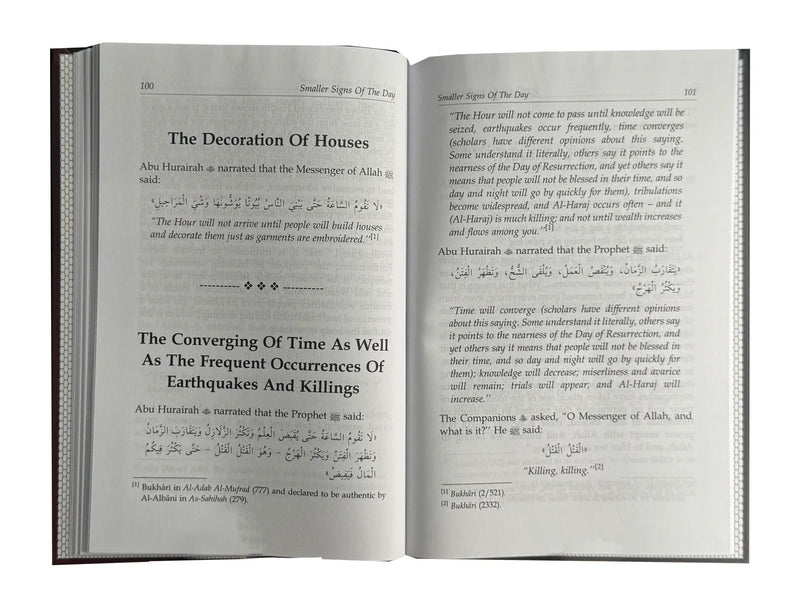 100
Smaller Signs Of The Day
The Decoration Of Houses
Abu Hurairah narrated that the Messenger of Allah ﷺ
said:
«لَا تَقُومُ السَّاعَةُ حَتَّى يَبْنِيَ النَّاسُ بُيُوتًا يُوَشُّونَهَا وَشْيَ الْمَرَاحِيلِ»
"The Hour will not arrive until people will build houses
and decorate them just as garments are embroidered."[1]
---------- ❖ ❖ ❖ ----------
The Converging Of Time As Well
As The Frequent Occurrences Of
Earthquakes And Killings
Abu Hurairah narrated that the Prophet ﷺ said:
«لَا تَقُومُ السَّاعَةُ حَتَّى يُقْبَضَ الْعِلْمُ وَتَكْثُرَ الزَّلَازِلُ وَيَتَقَارَبَ الزَّمَانُ
وَتَظْهَرَ الْفِتَنُ وَيَكْثُرَ الْهَرْجُ - وَهُوَ الْقَتْلُ الْقَتْلُ - حَتَّى يَكْثُرَ فِيكُمُ
الْمَالُ فَيَفِيضُ»
[1] Bukhâri in Al-Adab Al-Mufrad (777) and declared to be authentic by
Al-Albâni in As-Sahihah (279).
Smaller Signs Of The Day
101
"The Hour will not come to pass until knowledge will be
seized, earthquakes occur frequently, time converges
(scholars have different opinions about this saying.
Some understand it literally, others say it points to the
nearness of the Day of Resurrection, and yet others say it
means that people will not be blessed in their time, and so
day and night will go by quickly for them), tribulations
become widespread, and Al-Haraj occurs often – and it
(Al-Haraj) is much killing; and not until wealth increases
and flows among you."[1]
Abu Hurairah narrated that the Prophet ﷺ said:
«يَتَقَارَبُ الزَّمَانُ، وَيَنْقُصُ الْعَمَلُ، وَيُلْقَى الشُّحُّ، وَتَظْهَرُ الْفِتَنُ،
وَيَكْثُرُ الْهَرْجُ»
"Time will converge (scholars have different opinions
about this saying. Some understand it literally, others say
it points to the nearness of the Day of Resurrection, and
yet others say it means that people will not be blessed in
their time, and so day and night will go by quickly for
them); knowledge will decrease; miserliness and avarice
will remain; trials will appear; and Al-Haraj will
increase."
The Companions asked, "O Messenger of Allah, and
what is it?" He ﷺ said:
«الْقَتْلُ الْقَتْلُ»
"Killing, killing."[2]
[1] Bukhâri (2/521).
[2] Bukhâri (2332).